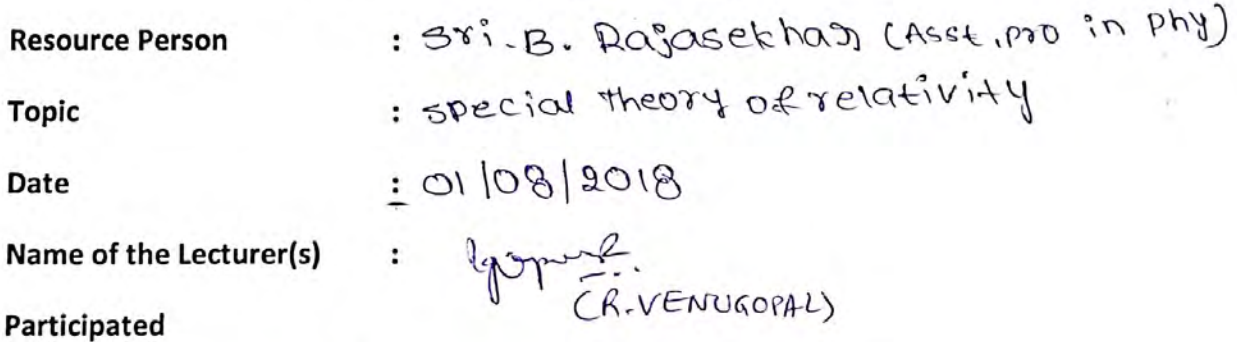 Resource Person : Sri. B. Rajasekhar (Asst. pro in phy)
Topic : special theory of relativity
Date : 01/08/2018
Name of the Lecturer(s) :
(R. VENUGOPAL)
Participated